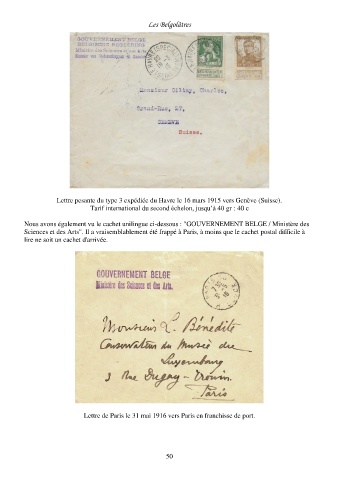 Les Belgolâtres
GOUVERNEMENT BELGE
Monsieur Giltay, Charles,
Grand-Rue, 27,
GENEVE
Suisse.
Lettre pesante du type 3 expédiée du Havre le 16 mars 1915 vers Genève (Suisse).
Tarif international du second échelon, jusqu'à 40 gr : 40 c
Nous avons également vu le cachet unilingue ci-dessous : "GOUVERNEMENT BELGE / Ministère des
Sciences et des Arts". Il a vraisemblablement été frappé à Paris, à moins que le cachet postal difficile à
lire ne soit un cachet d'arrivée.
GOUVERNEMENT BELGE
Ministère des Sciences et des Arts.
Monsieur L. Bénédite
Conservateur du Musée du
Luxembourg
3 Rue Dugay-Trouin
Paris
Lettre de Paris le 31 mai 1916 vers Paris en franchise de port.
50